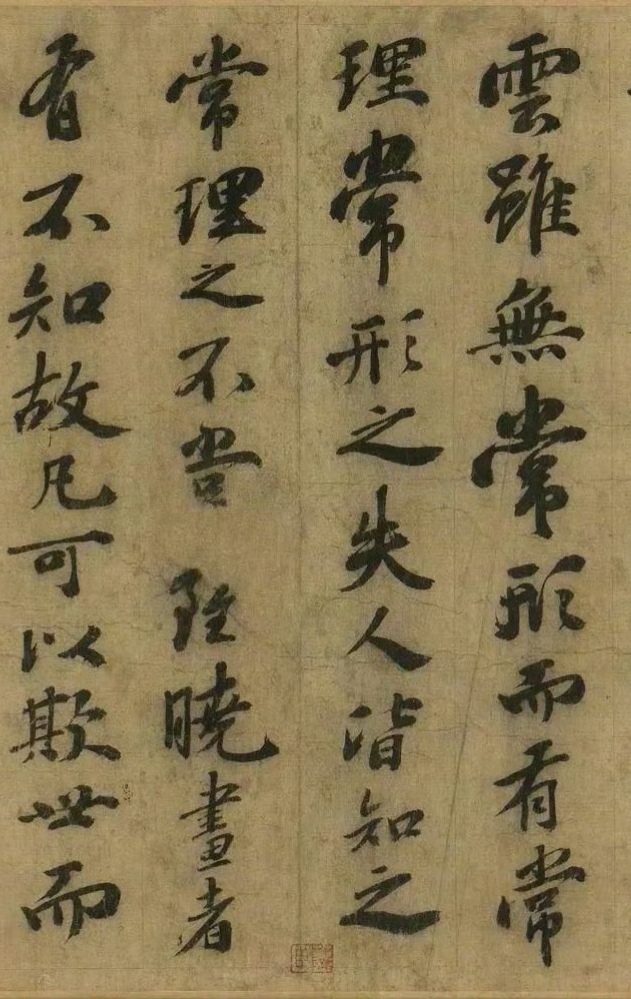 雲雖無常形而有常
理常形之失人皆知之
常理之不當雖曉畫者
有不知故凡可以欺世而